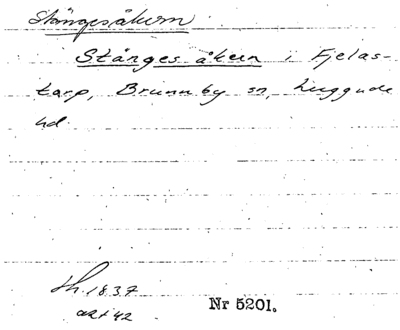 Stångesåkern
Stånges åkern i Fjelas-
tarp, Brunnby sn, Luggude
hd
Lh. 1837
akt 42
Nr 5201.